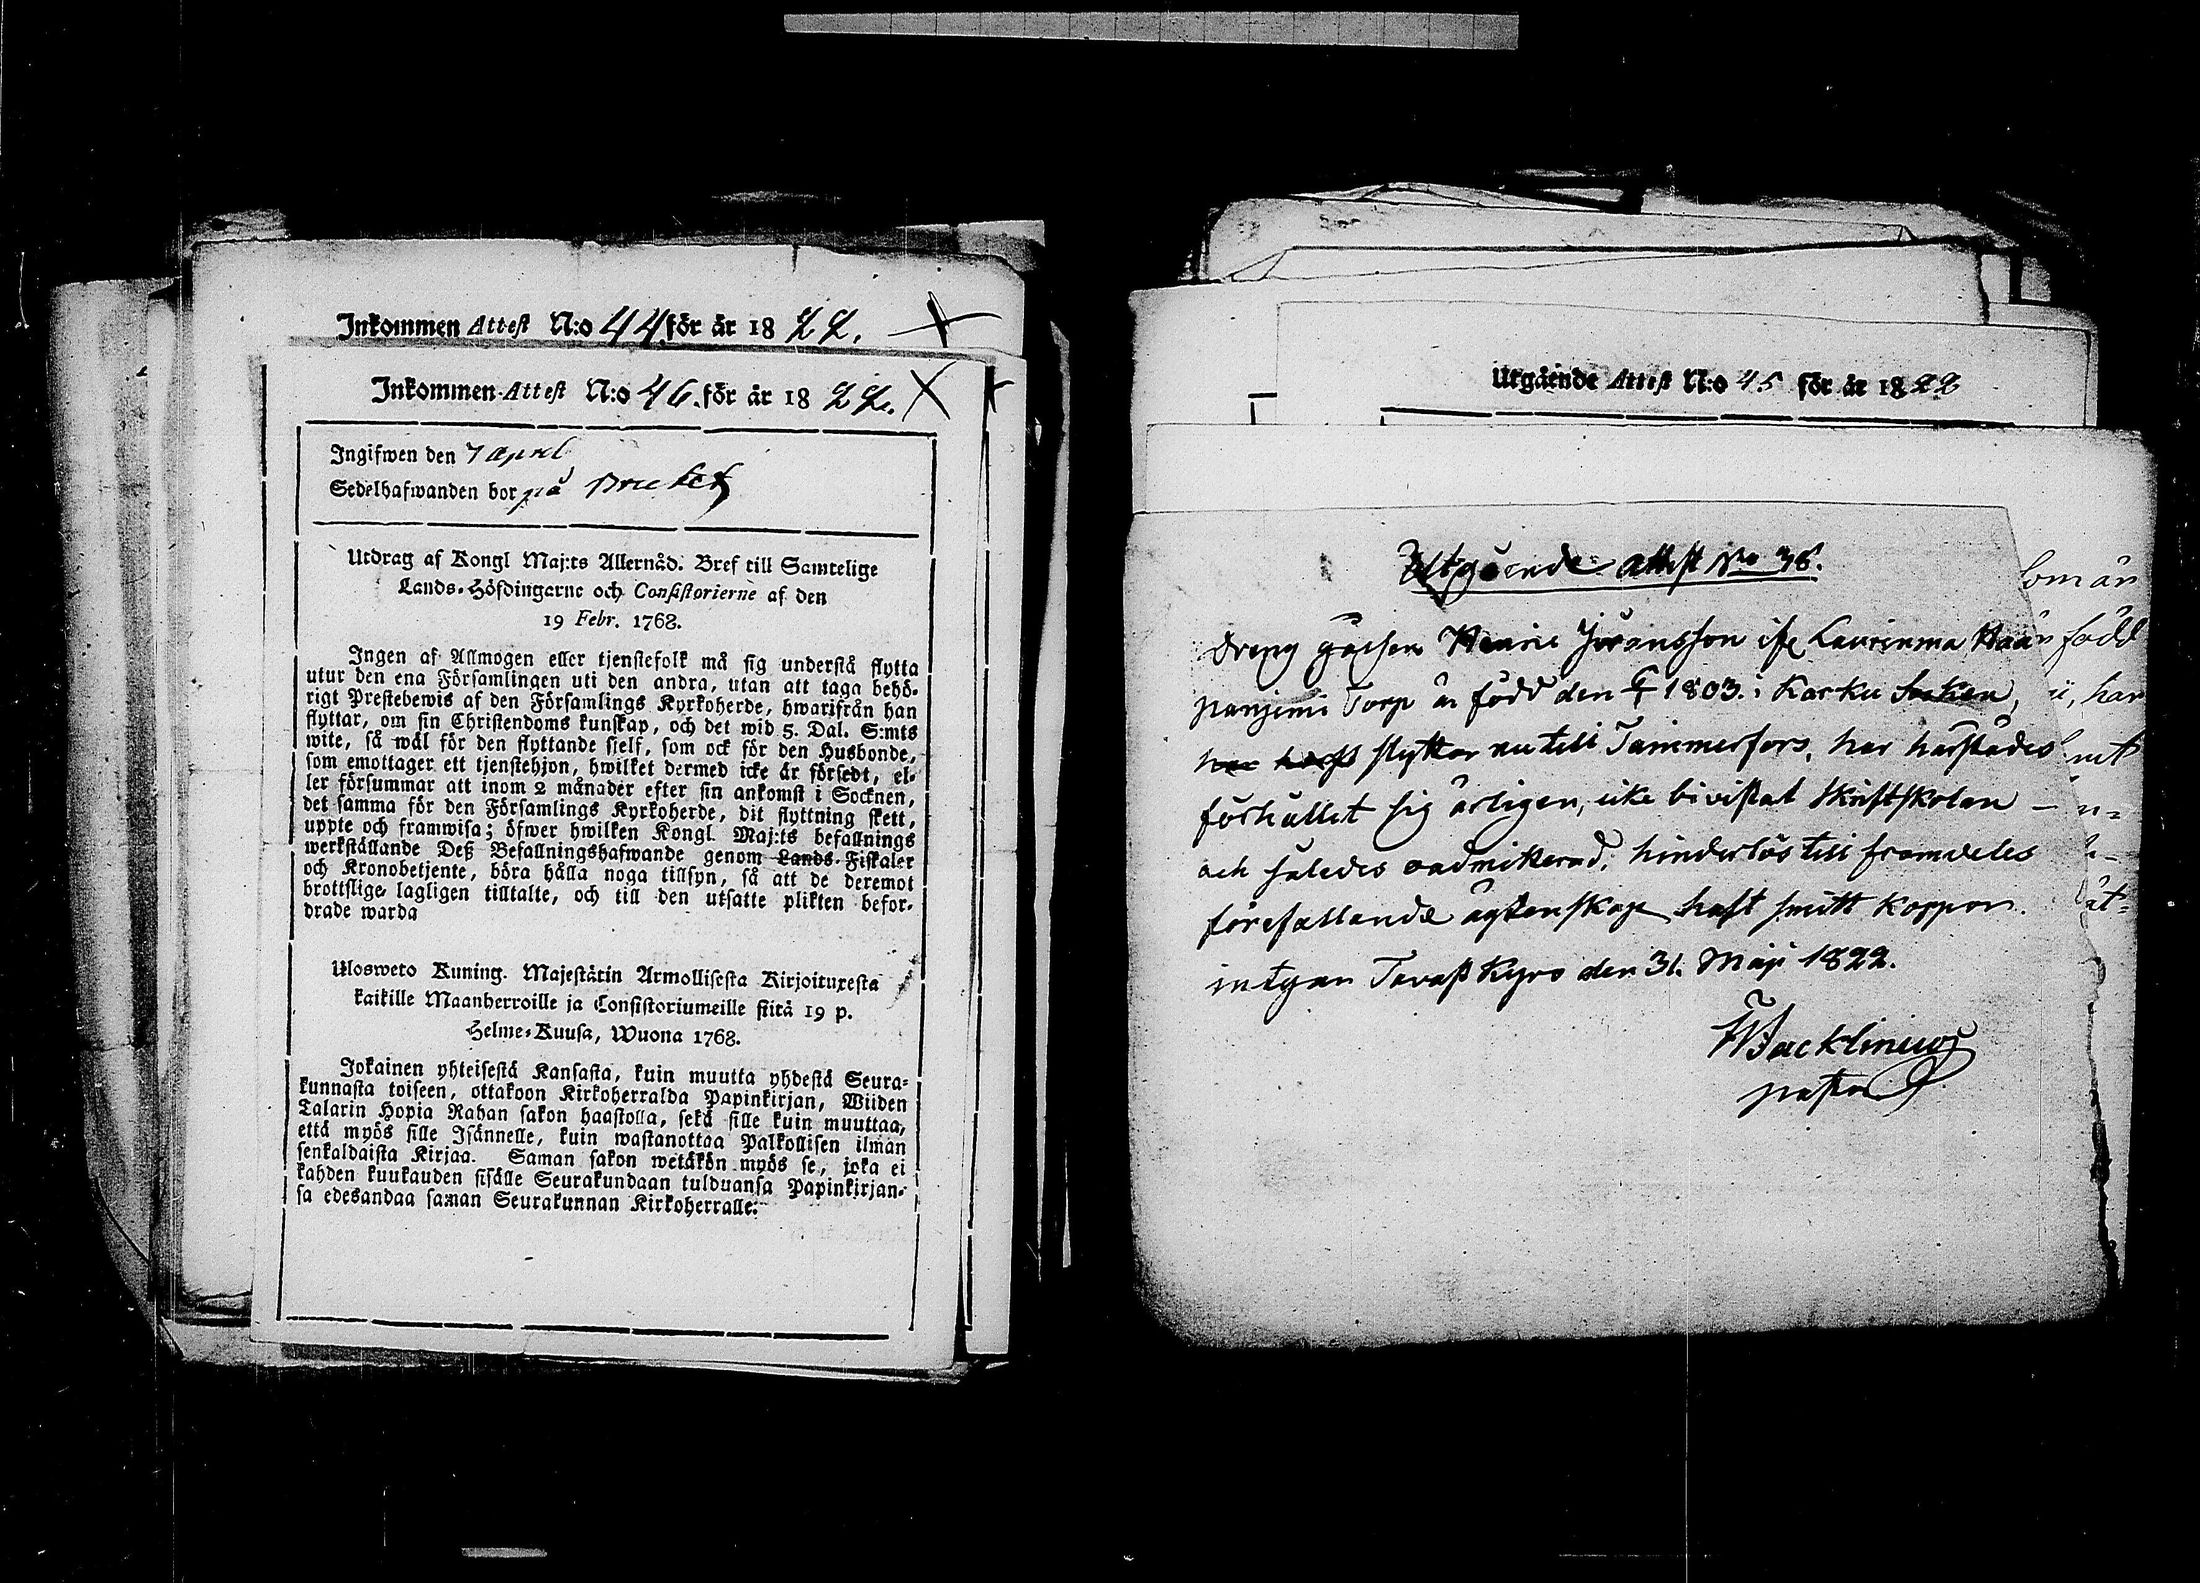 Inkommen Attest N:o 44 för år 1822.
Inkommen Attest N:o 46. för år 1822.
Ingifwen den 7 April
Sedelhafwanden bor på Bruket
Utdrag af Kongl Maj:ts Allernåd. Bref till Samtelige
Lands-Höfdingarne och Consistorierne af den
19 Febr. 1768.
Ingen af Allmogen eller tjenstefolk må sig understå flytta
utur den ena Församlingen uti den andra, utan att taga behö-
rigt Prestebewis af den Församlings Kyrkoherde, hwarifrån han
flyttar, om sin Christendoms kunskap, och det wid 5. Dal. S:mts
wite, så wäl för den flyttande sielf, som ock för den Husbonde,
som emottager ett tjenstehjon, hwilket dermed icke är försedt, el-
ler försummar att inom 2 månader efter sin ankomst i Socknen,
det samma för den Församlings Kyrkoherde, dit flyttning skett,
uppte och framwisa; öfwer hwilken Kongl. Maj:ts befallnings
werkställande Deß Befallningshafwande genom Lands-Fiskaler
och Kronobetjente, böra hålla noga tillsyn, så att de deremot
brottslige lagligen tilltalte, och till den utsatte plikten befor-
drade warda
Ulosweto Kuning. Majestätin Armollisesta Kirjoituxesta
kaikille Maanherroille ja Consistoriumeille siitä 19 p.
Helme-Kuusa, Wuona 1768.
Jokainen yhteisestä Kansasta, kuin muutta yhdestä Seura-
kunnasta toiseen, ottakoon Kirkoherralda Papinkirjan, Wiiden
Talarin Hopia Rahan sakon haastolla, sekä sille kuin muuttaa,
että myös sille Isännelle, kuin wastanottaa Palkollisen ilman
senkaldaista Kirjaa. Saman sakon wetäkön myös se, joka ei
kahden kuukauden sisälle Seurakundaan tulduansa Papinkirjan-
sa edesandaa saman Seurakunnan Kirkoherralle.
Utgående Attest N:o 45 för år 1822
Utgående attest No 38.
Dreng gåssen Henric Jöransson ifr Laurinma Haa
panjemi Torp är född den 1803. i Karku Socken,
har flyttar nu till Tammerfors, har härstädes
förhållit sig ärligen, icke bivistat Skriftskolan –
och således oadmitterad, hinderlös till framdeles
förefallande ägtenskap haft smitt koppor.
intygar Tavast Kyro den 31. Maji 1822.
F Backlinius
pastor
som är
född
har